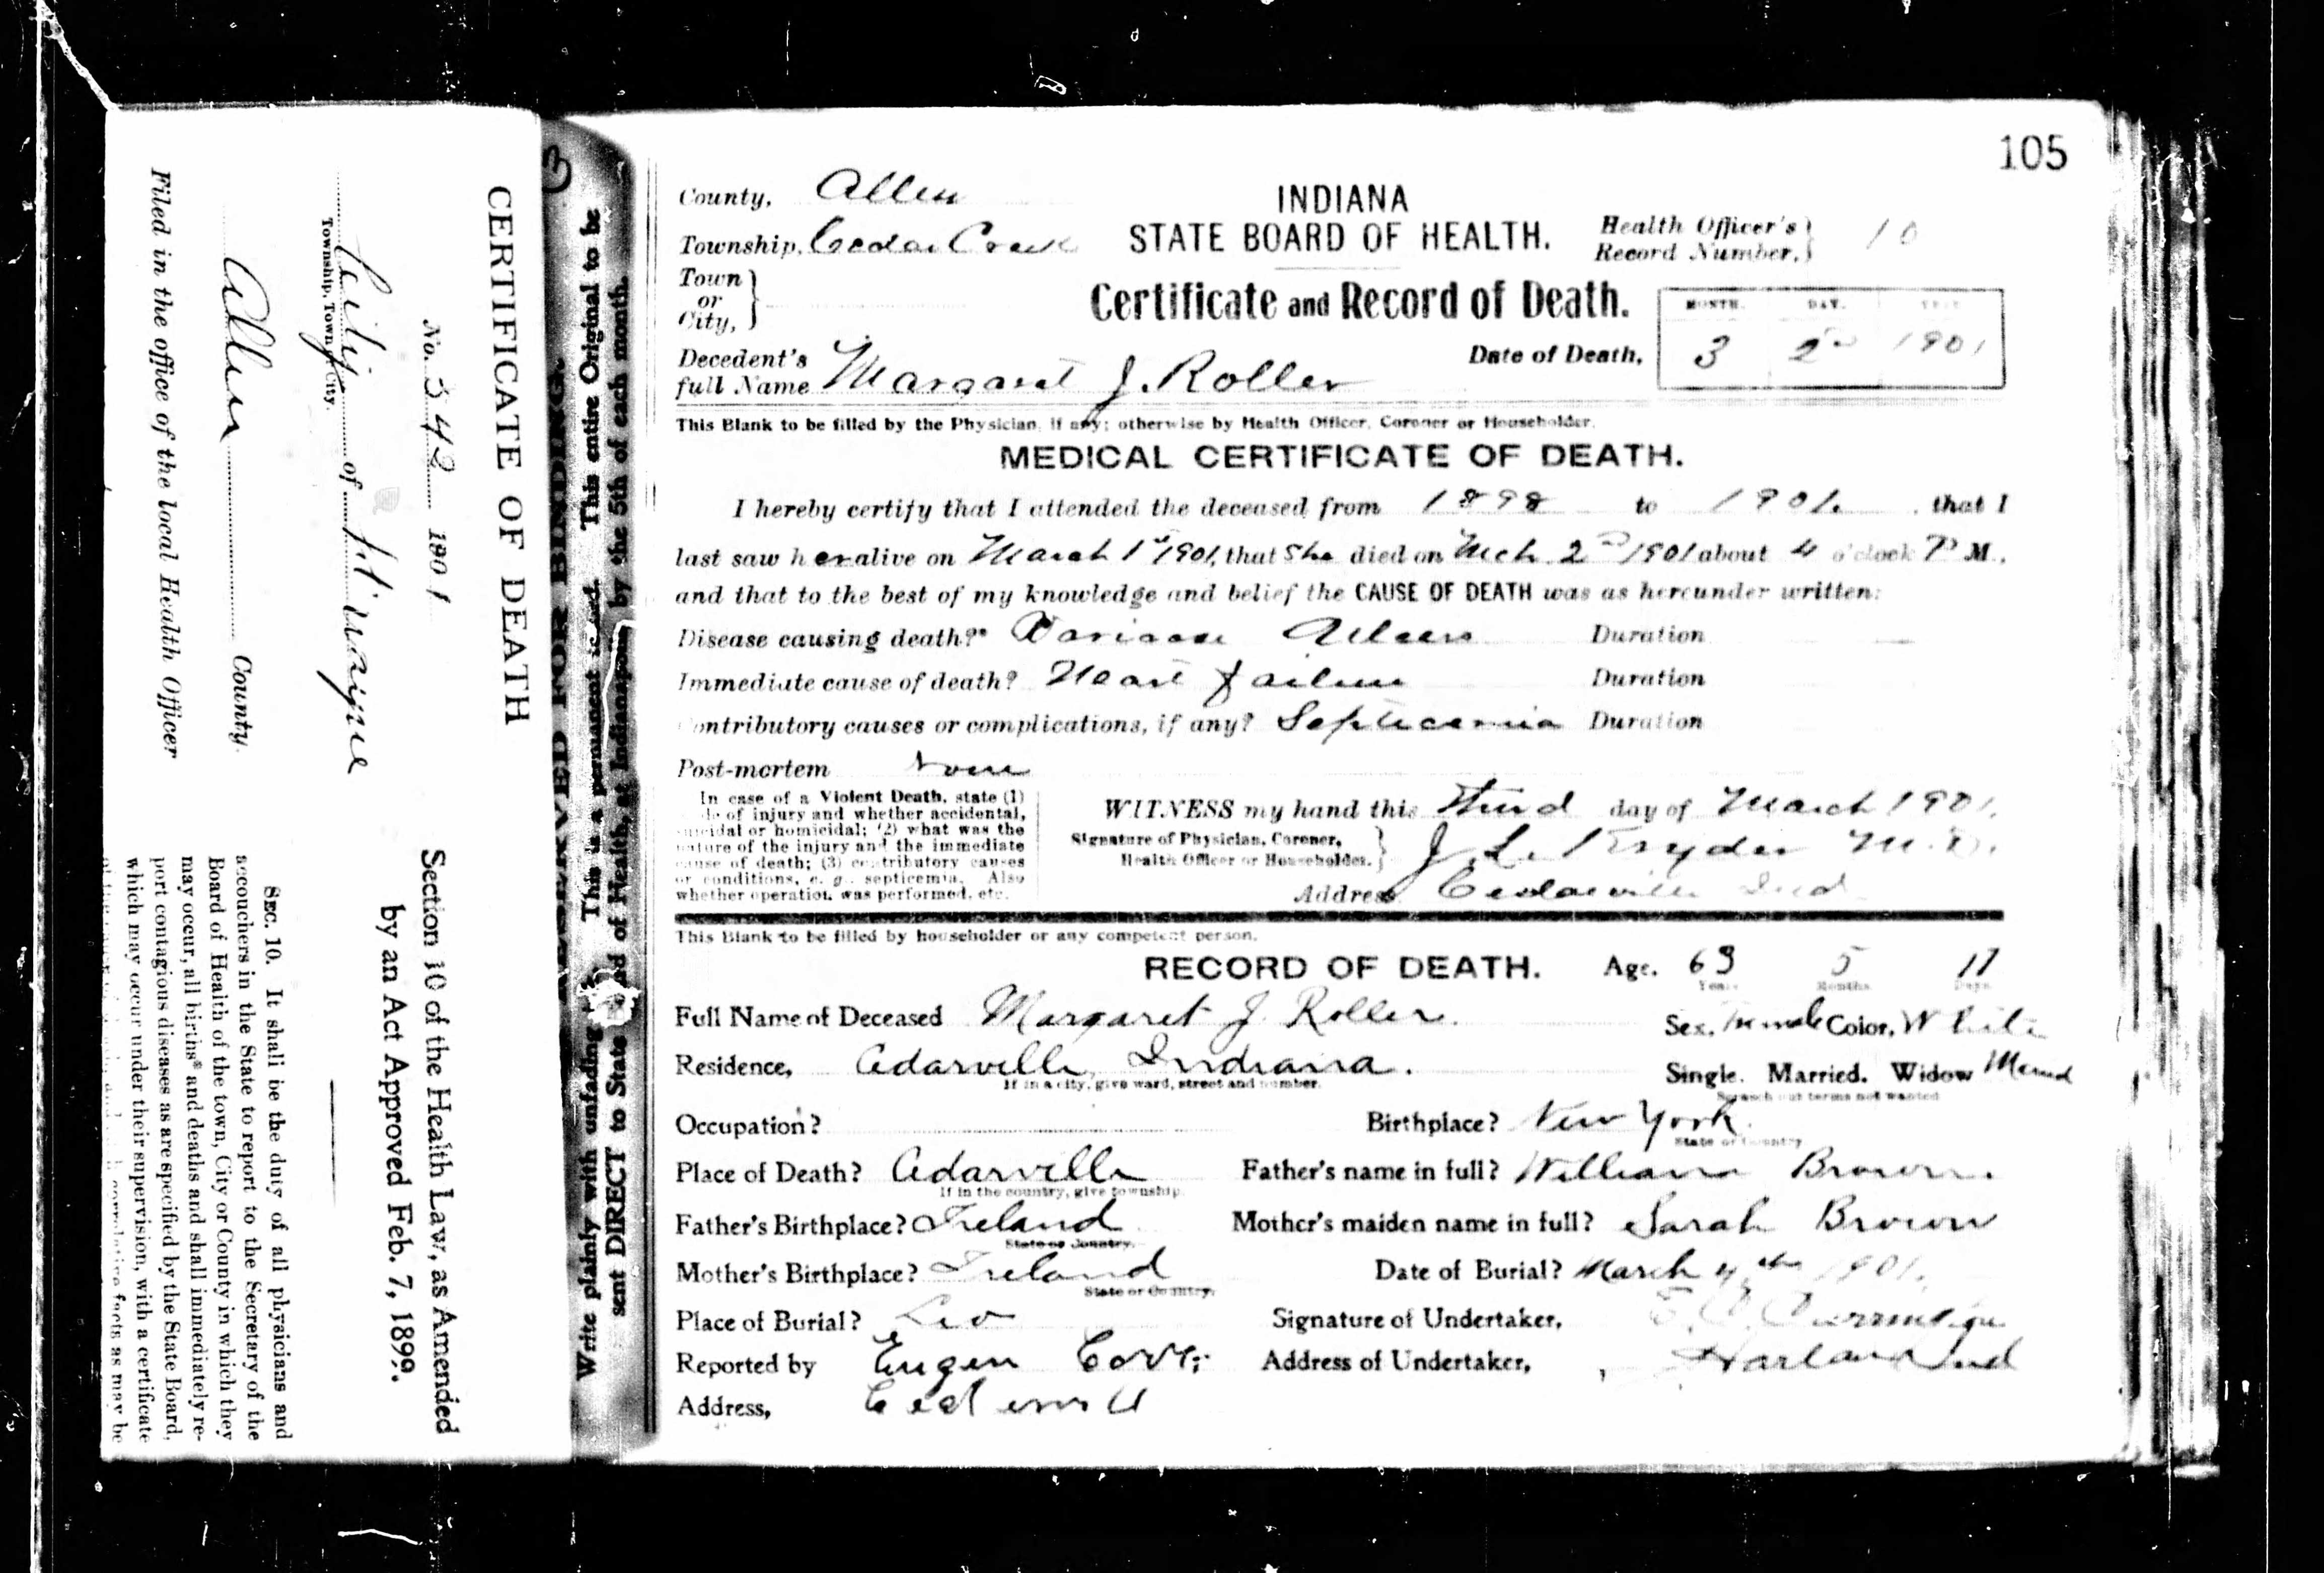 105
County, Allen
INDIANA
Township, Cedar Creek
STATE BOARD OF HEALTH.
Health Officer's
Record Number, 10
Town
or
City,
Certificate and Record of Death.
MONTH. DAY. YEAR
Decedent's
full Name Margaret J. Roller
Date of Death, 3 2nd 1901
This Blank to be filled by the Physician, if any; otherwise by Health Officer, Coroner or Householder.
MEDICAL CERTIFICATE OF DEATH.
I hereby certify that I attended the deceased from 1898 to 1901. that I
last saw her alive on March 1st 1901, that She died on Mch 2nd 1901 about 4 o'clock P M.,
and that to the best of my knowledge and belief the CAUSE OF DEATH was as hereunder written:
Disease causing death?* Varicose Ulcers Duration
Immediate cause of death? Heart failure Duration
Contributory causes or complications, if any? Septicemia Duration
Post-mortem None
In case of a Violent Death, state (1)
of injury and whether accidental,
suicidal or homicidal; (2) what was the
nature of the injury and the immediate
cause of death; (3) contributory causes
or conditions, e. g., septicemia. Also
whether operation was performed, etc.
WITNESS my hand this Third day of March 1901.
Signature of Physician, Coroner,
Health Officer or Householder. J. L. Kryder M.D.
Address Cedarville Ind
This Blank to be filled by householder or any competent person.
RECORD OF DEATH. Age. 63 5 11
Years Months Days
Full Name of Deceased Margaret J. Roller. Sex, Female Color, White
Residence, Cedarville, Indiana. Single. Married. Widow Married
If in a city, give ward, street and number. Scratch out terms not wanted
Occupation? Birthplace? New York.
State or Country
Place of Death? Cedarville Father's name in full? William Brown.
If in the country, give township.
Father's Birthplace? Ireland Mother's maiden name in full? Sarah Brown
State or Country.
Mother's Birthplace? Ireland Date of Burial? March 4th 1901.
State or Country.
Place of Burial? Leo Signature of Undertaker,
Reported by Eugen Address of Undertaker, Harlan Ind
Address,
Write plainly with unfading This is a permanent record. This entire Original to be
sent DIRECT to State Board of Health, at Indianapolis by the 5th of each month.
RESERVED FOR BINDING.
CERTIFICATE OF DEATH
No. 342 1901
City of Ft Wayne
Township, Town or City.
Allen County.
Filed in the office of the local Health Officer
Section 10 of the Health Law, as Amended
by an Act Approved Feb. 7, 1899.
SEC. 10. It shall be the duty of all physicians and
accouchers in the State to report to the Secretary of the
Board of Health of the town, City or County in which they
may occur, all births* and deaths and shall immediately re-
port contagious diseases as are specified by the State Board,
which may occur under their supervision, with a certificate
facts as may be